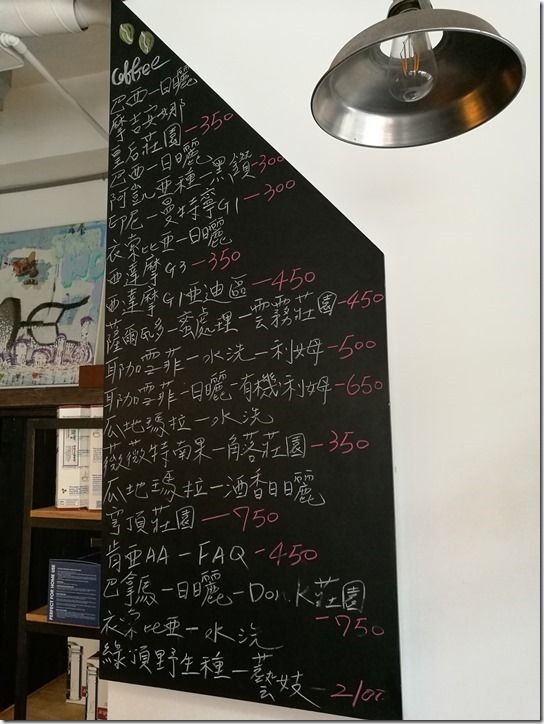 Coffee
巴西-日曬
摩吉安娜
皇后莊園-350
巴西-日曬
阿凱亞種-黑鑽-300
印尼-曼特寧G1-300
衣索比亞-日曬
西達摩G3-350
西達摩G1亞迪區-450
薩爾瓦多-蜜處理-雲霧莊園-450
耶加雪菲-水洗-利姆-500
耶加雪菲-日曬-有機利姆-650
瓜地瑪拉-水洗
薇薇特南果-角落莊園-350
瓜地瑪拉-酒香日曬
穹頂莊園-750
肯亞AA-FAQ-450
巴拿馬-日曬-Don.K莊園
-750
衣索比亞-水洗
綠頂野生種-藝
妓-2100
PERFECT FOR HOME USE